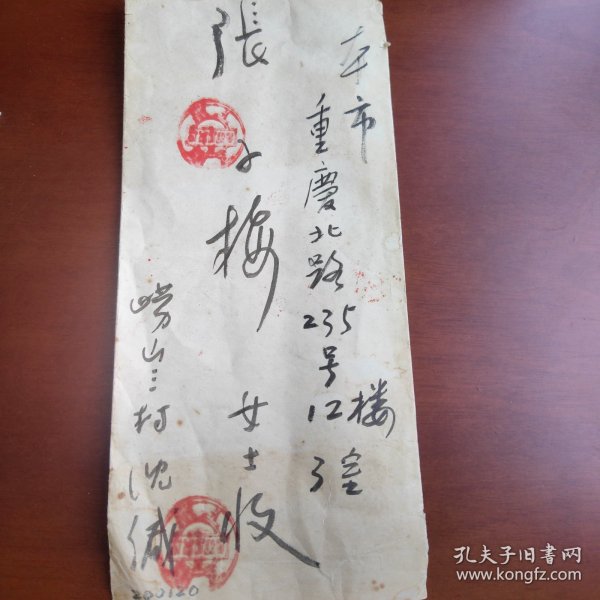 本市
重慶北路235号12楼
3室
張子梅 女士收
崂山三村 沈缄
200120
孔夫子旧书网
www.kongfz.com